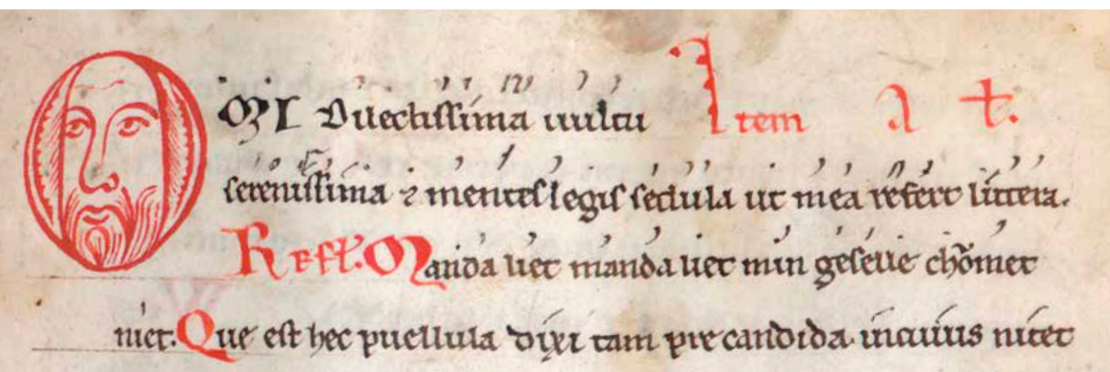 O MI Dilectissima uultu Item A t.
serenissima ⁊ mentes legis sedula ut mea refert littera.
Refł. Manda liet manda liet min geselle chomet
niet. Que est hec puellula dixi tam precandida. incuius nitet